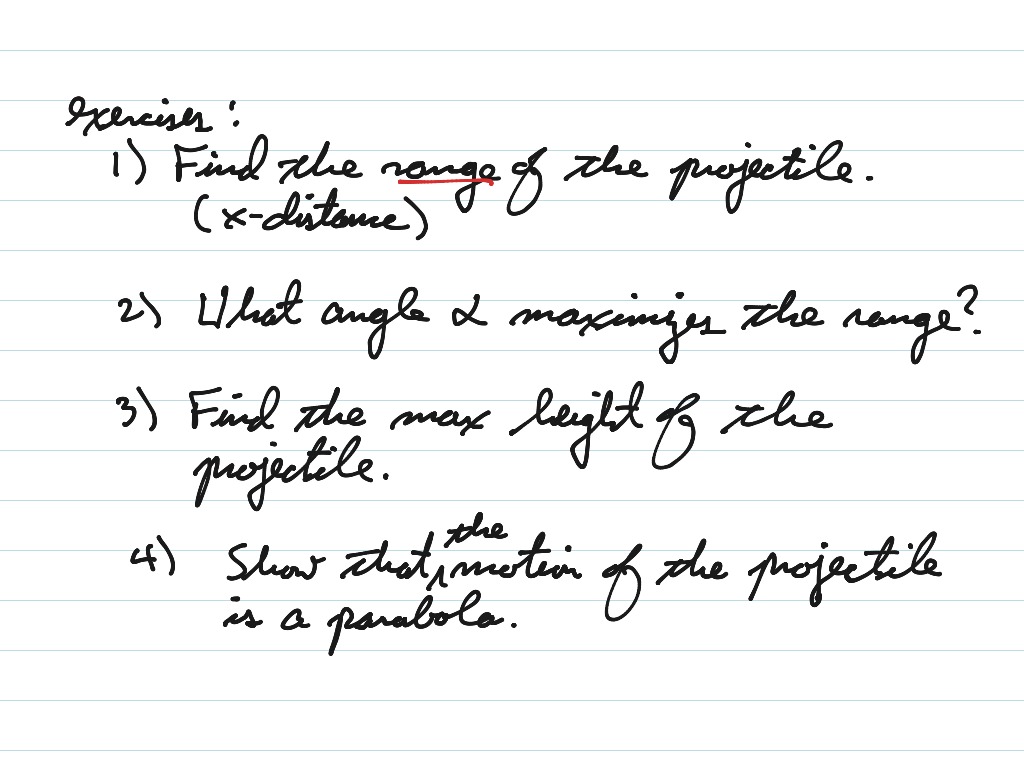 exercises:
1) Find the range of the projectile.
(x-distance)
2) What angle α maximizes the range?
3) Find the max height of the
projectile.
4) Show that the motion of the projectile
is a parabola.